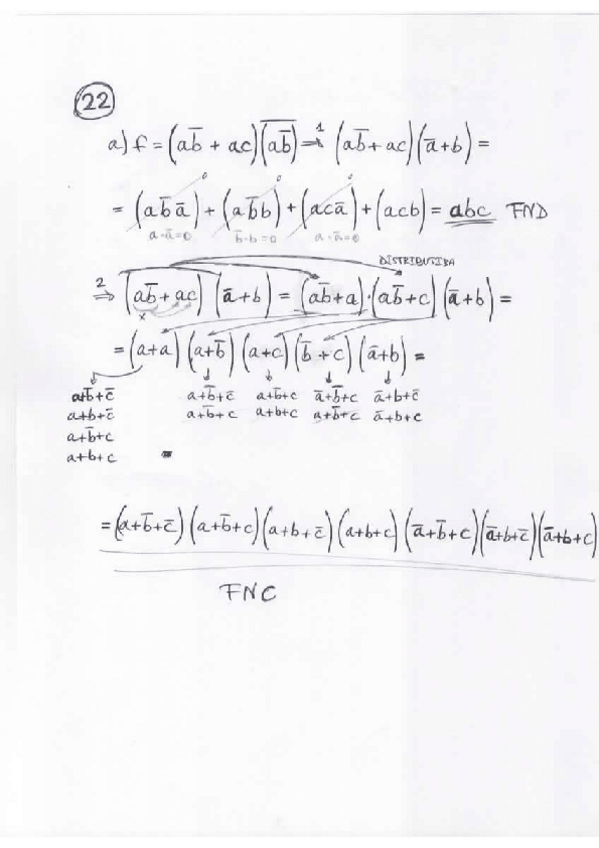 22
a) f = (ab̅ + ac)(\overline{ab̅}) =¹> (ab̅ + ac)(a̅ + b) =
= (ab̅a̅) + (ab̅b) + (aca̅) + (acb) = abc FND
0 0 0
a·a̅=0 b̅·b=0 a·a̅=0
DISTRIBUTIBA
2 ⇒ (ab̅ + ac)(a̅ + b) = (ab̅ + a)·(ab̅ + c)(a̅ + b) =
= (a+a)(a+b̅)(a+c)(b̅+c)(a̅+b) =
a+b̅+c̅ a+b̅+c̅ a+b̅+c a̅+b̅+c a̅+b+c̅
a+b+c̅ a+b̅+c a+b+c a+b̅+c a̅+b+c
a+b̅+c
a+b+c =
= (a+b̅+c̅)(a+b̅+c)(a+b+c̅)(a+b+c)(a̅+b̅+c)(a̅+b+c̅)(a̅+b+c)
FNC